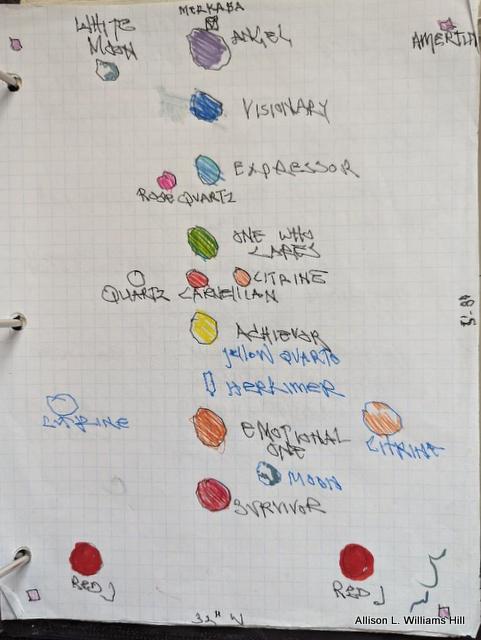 MERKABA
WHITE
MOON
ANGEL
AMETH
VISIONARY
EXPRESSOR
ROSE QUARTZ
ONE WHO
CARES
CITRINE
QUARTZ CARNELIAN
ACHIEVOR
YELLOW QUARTZ
HERKIMER
CITRINE
EMOTIONAL
ONE
CITRINE
MOON
SURVIVOR
RED J
RED J
Allison L. Williams Hill